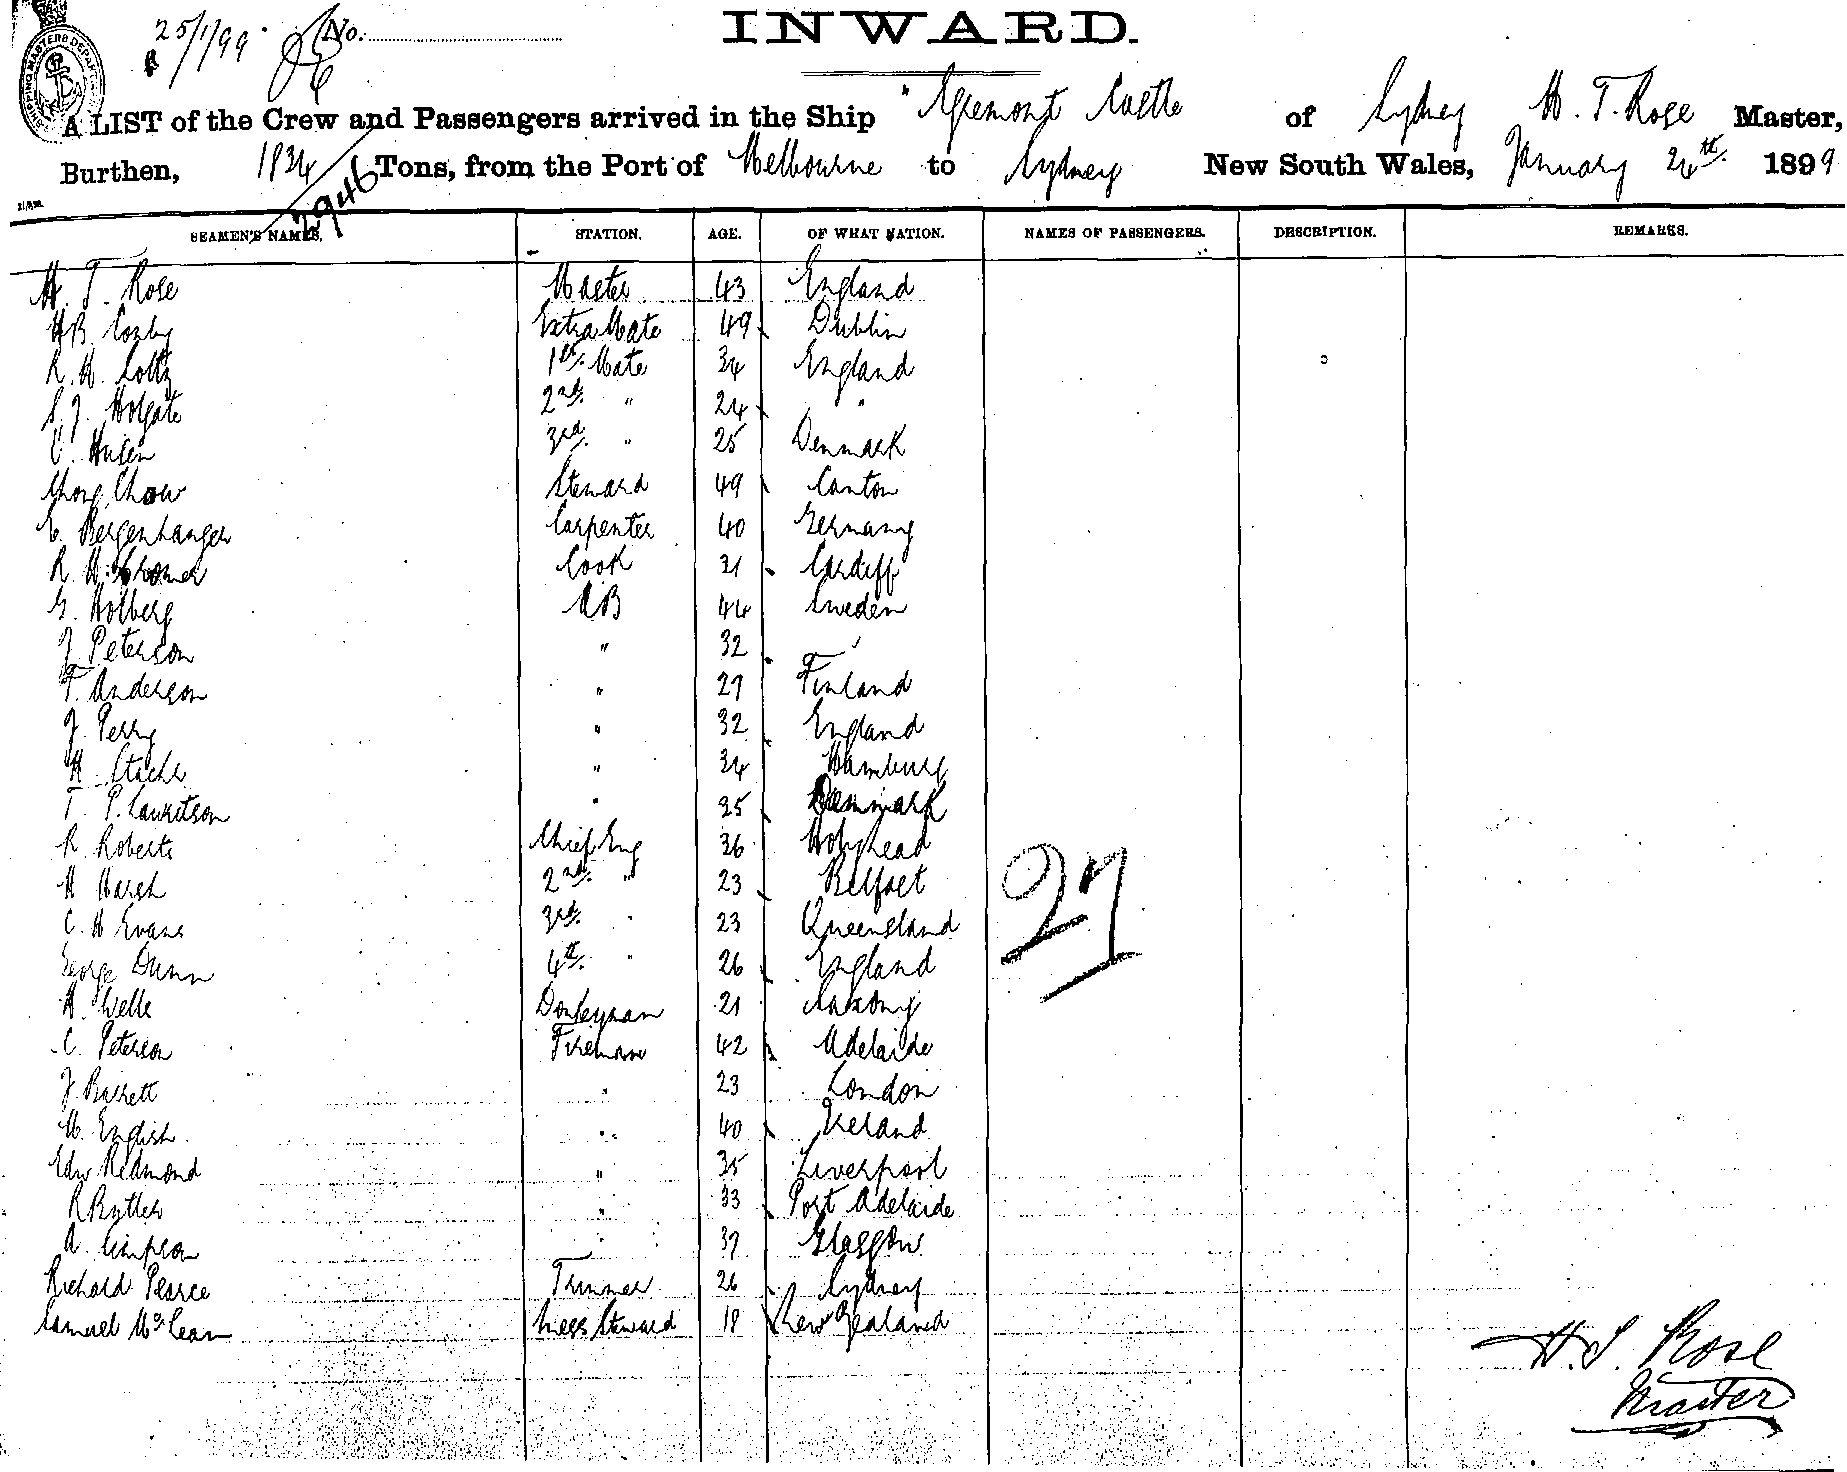 25/1/99 No.
INWARD.
A LIST of the Crew and Passengers arrived in the Ship "Egremont Castle of Sydney H. T. Rose Master,
Burthen, 1834/2946 Tons, from the Port of Melbourne to Sydney New South Wales, January 24th 1899
SEAMEN'S NAMES. STATION. AGE. OF WHAT NATION. NAMES OF PASSENGERS. DESCRIPTION. REMARKS.
H. T. Rose Master 43 England
H B. Extra Mate 49 Dublin
R. H. 1st Mate 34 England
S. J. Holgate 2nd " 24 "
3rd " 25 Denmark
Chong Chow Steward 49 Canton
Carpenter 40 Germany
R. H. Cook 31 Cardiff
G. Holberg AB 44 Sweden
J. Peterson " 32 "
F. Anderson " 27 Finland
J. Perry " 32 England
H. " 34 Hamburg
T. P. Lauritson " 25 Denmark
R Roberts Chief Eng 36 Holyhead
H Marsh 2nd " 23 Belfast
C. H Evans 3rd " 23 Queensland
George Dunn 4th " 26 England
H. Welle Donkeyman 21 Saxony
C. Peterson Fireman 42 Adelaide
J. Barrett " 23 London
M. English " 40 Ireland
Edw Redmond " 35 Liverpool
R Butler " 33 Port Adelaide
A. Simpson " 37 Glasgow
Richard Pearce Trimmer 26 Sydney
Samuel McLean Mess Steward 18 New Zealand
27
H. T. Rose
Master